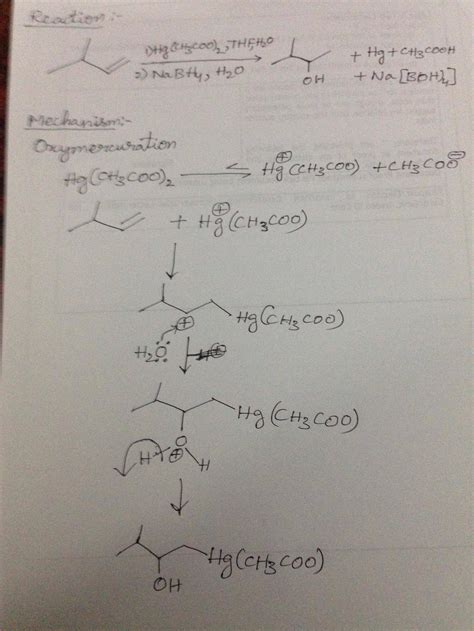 Reaction:-
1) Hg(CH3COO)2, THF, H2O
2) NaBH4, H2O
OH
+ Hg + CH3COOH
+ Na[B(OH)4]
Mechanism:-
Oxymercuration
Hg(CH3COO)2 ⇌ Hg⊕(CH3COO) + CH3COO⊖
+ Hg⊕(CH3COO)
⊕ Hg(CH3COO)
H2O
Hg(CH3COO)
O
H ⊕ H
Hg(CH3COO)
OH